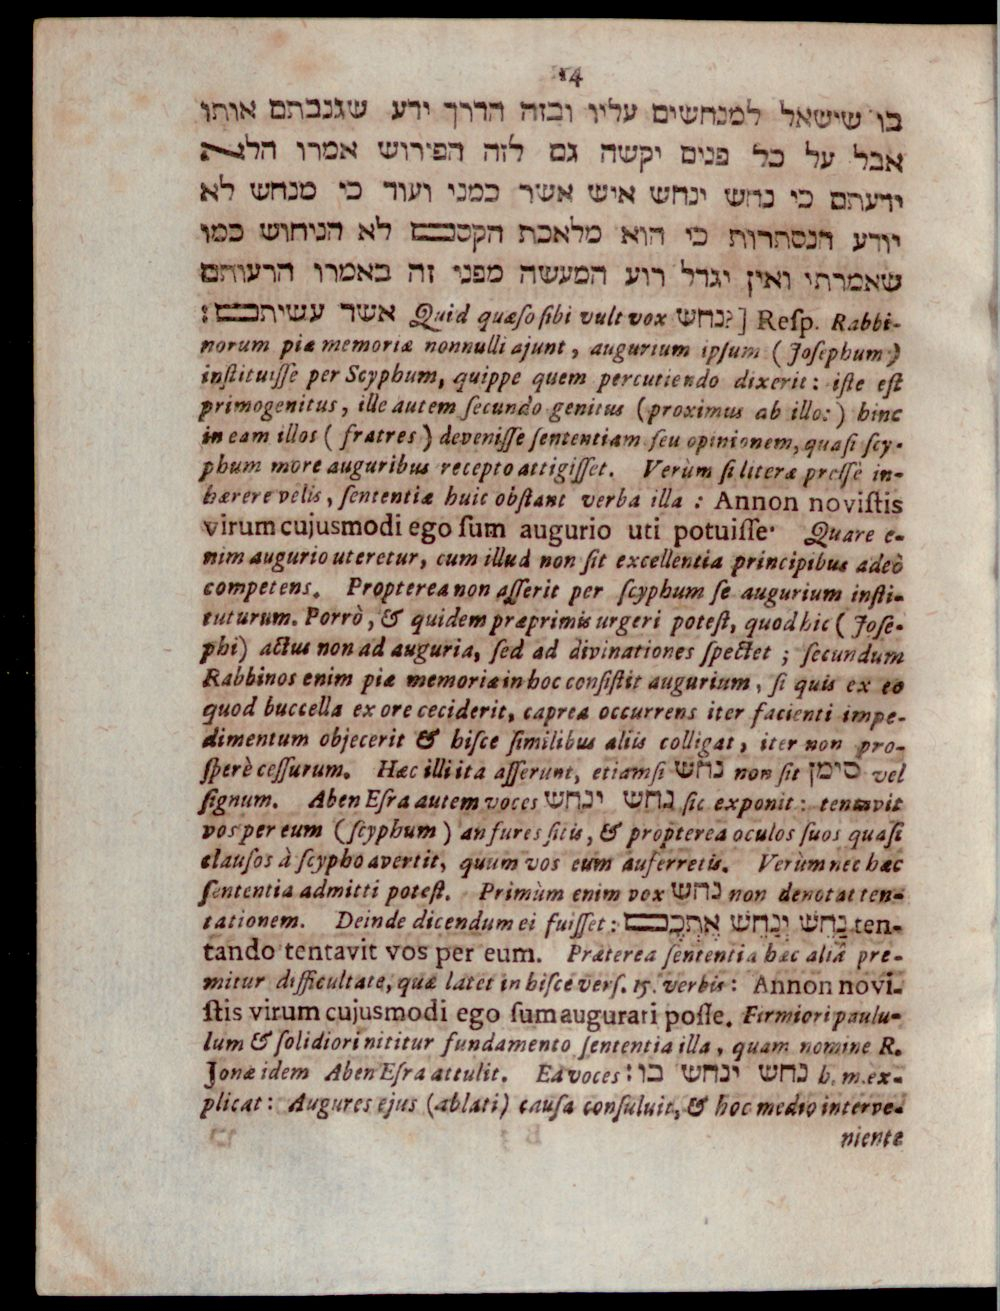 14
בו שישאל למנחשים עליו ובזה הדרך ידע שגנבתם אותו
אבל על כל פנים יקשה גם לזה הפירוש אמרו הלא
ידעתם כי נחש ינחש איש אשר כמני ועוד כי מנחש לא
יודע הנסתרות כי הוא מלאכת הקסם לא הניחוש כמו
שאמרתי ואין יגדל רוע המעשה מפני זה באמרו הרעותם
אשר עשיתם: Quid quæso sibi vult vox נחש?] Reſp. Rabbi-
norum piæ memoriæ nonnulli ajunt, augurium ipſum (Joſephum)
inſtituiſſe per Scyphum, quippe quem percutiendo dixerit: iſte eſt
primogenitus, ille autem ſecundo genitus (proximus ab illo:) hinc
in eam illos (fratres) deveniſſe ſententiam ſeu opinionem, quaſi ſcy-
phum more auguribus recepto attigiſſet. Verùm ſi literæ preſſè in-
hærere velis, ſententiæ huic obſtant verba illa: Annon noviſtis
virum cujusmodi ego ſum augurio uti potuiſſe· Quare e-
nim augurio uteretur, cum illud non ſit excellentia principibus adeò
competens. Propterea non aſſerit per ſcyphum ſe augurium inſti-
tuturum. Porrò, & quidem præprimis urgeri poteſt, quod hic (Joſe-
phi) actus non ad auguria, ſed ad divinationes ſpectet; ſecundum
Rabbinos enim piæ memoriæ in hoc conſiſtit augurium, ſi quis ex eo
quod buccella ex ore ceciderit, caprea occurrens iter facienti impe-
dimentum objecerit & hiſce ſimilibus aliis colligat, iter non pro-
ſperè ceſſurum. Hæc illi ita aſſerunt, etiamſi נחש non ſit סימן vel
ſignum. Aben Eſra autem voces נחש ינחש ſic exponit: tentavit
vos per eum (ſcyphum) an fures ſitis, & propterea oculos ſuos quaſi
clauſos à ſcypho avertit, quum vos eum auferretis. Verùm nec hæc
ſententia admitti poteſt. Primùm enim vox נחש non denotat ten-
tationem. Deinde dicendum ei fuiſſet: נַחֵשׁ יְנַחֵשׁ אֶתְכֶם ten-
tando tentavit vos per eum. Præterea ſententia hæc aliâ pre-
mitur difficultate, quæ latet in hiſce verſ. 15. verbis: Annon novi-
ſtis virum cujusmodi ego ſum augurari poſſe. Firmiori paulu-
lum & ſolidiori nititur fundamento ſententia illa, quam nomine R.
Jonæ idem Aben Eſra attulit. Ea voces: נחש ינחש בו h. m. ex-
plicat: Augures ejus (ablati) cauſa conſuluit, & hoc medio interve-
niente